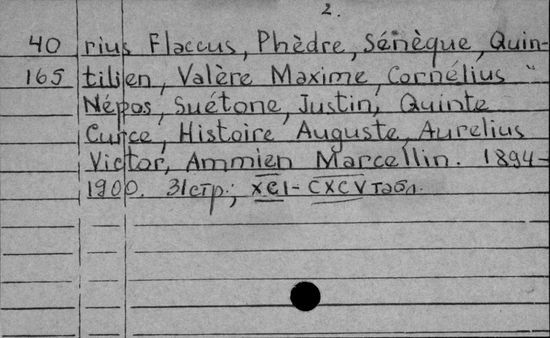 2.
40 rius Flaccus, Phèdre, Sénèque, Quin-
165 tilien, Valère Maxime, Cornélius
Népos, Suétone, Justin, Quinte
Curce, Histoire Auguste, Aurelius
Victor, Ammien Marcellin. 1894-
1900. 31стр.; XCI-CXCV табл.